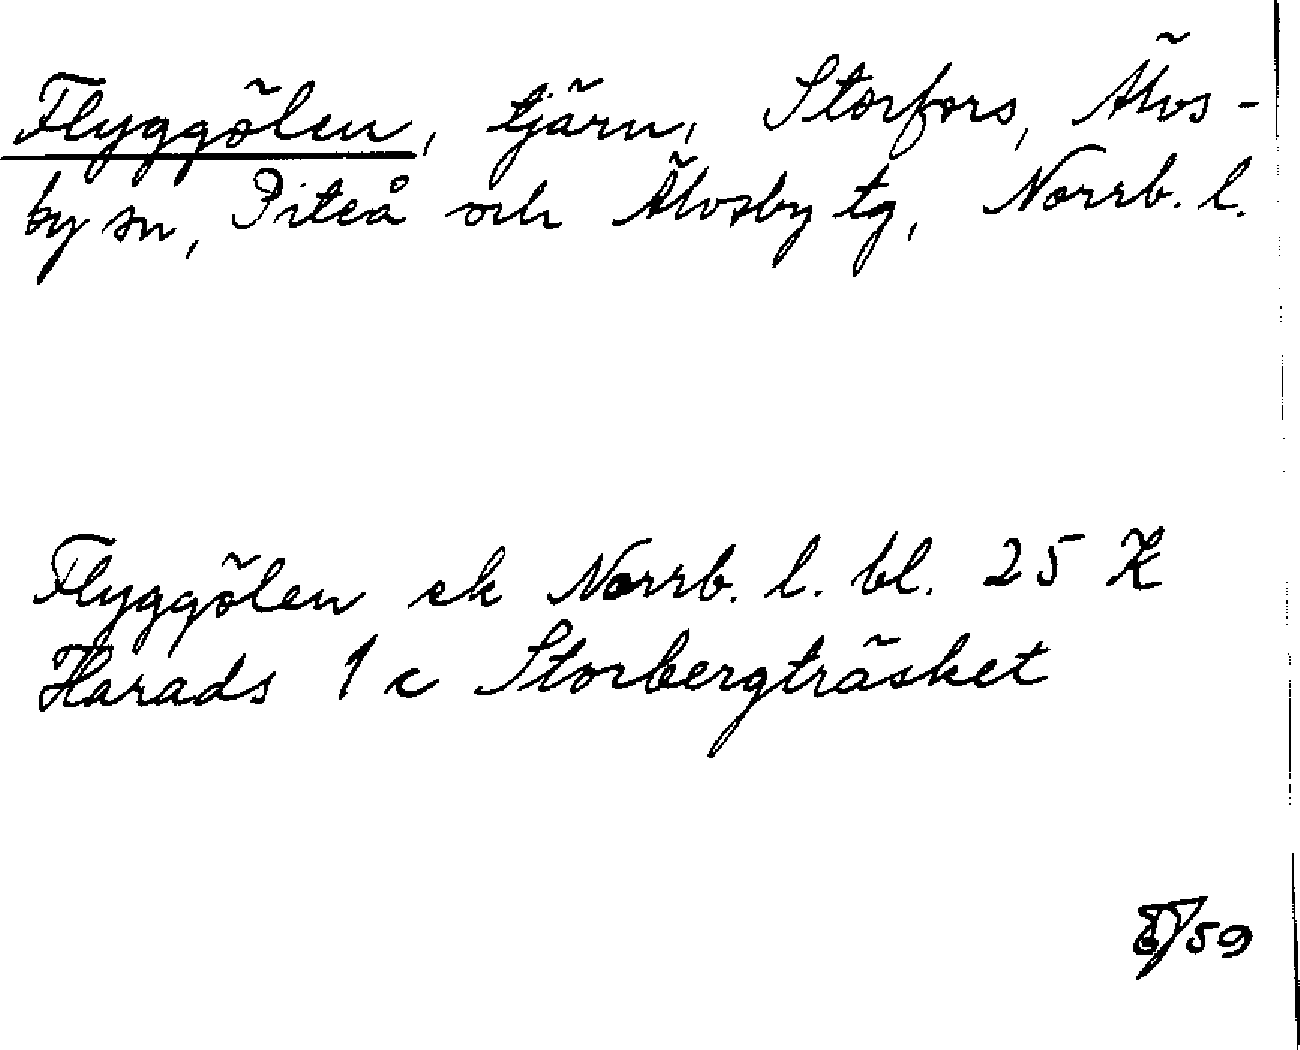 Flyggölen, tjärn, Storfors, Älvs-
by sn, Piteå och Älvsby tg, Norrb. l.
Flyggölen ek Norrb. l. bl. 25 K
Harads 1 c Storbergträsket
/59